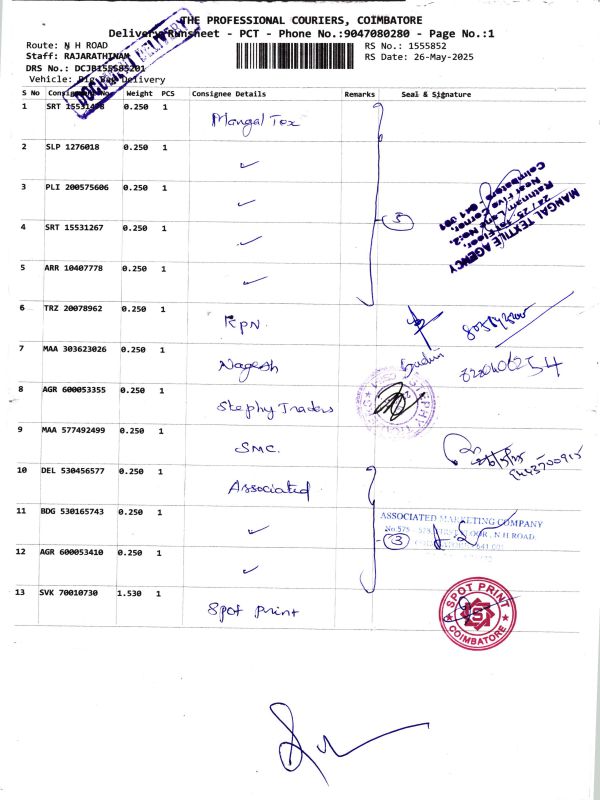 THE PROFESSIONAL COURIERS, COIMBATORE
Delivery Runsheet - PCT - Phone No.:9047080280 - Page No.:1
Route: N H ROAD
RS No.: 1555852
Staff: RAJARATHINAM
RS Date: 26-May-2025
DRS No.: DCJB155585201
Vehicle: Big Bag Delivery
DOCUMENT DELIVERY
S No Consignment No Weight PCS Consignee Details Remarks Seal & Signature
1 SRT 15531 0.250 1 Mangal Tex
2 SLP 1276018 0.250 1 ✓
3 PLI 200575606 0.250 1 ✓
4 SRT 15531267 0.250 1 ✓
5 ARR 10407778 0.250 1 ✓
5
MANGAL TEXTILE AGENCY
24 / 25, 1st Floor,
Rathinam Lane No:2,
Near Five Corner,
Coimbatore - 641 001
6 TRZ 20078962 0.250 1 KPN.
7 MAA 303623026 0.250 1 Nagesh
8 AGR 600053355 0.250 1 Stephy Traders
9 MAA 577492499 0.250 1 SMC.
26/5/25
10 DEL 530456577 0.250 1 Associated
11 BDG 530165743 0.250 1 ✓
12 AGR 600053410 0.250 1 ✓
3
ASSOCIATED MARKETING COMPANY
No.575 FLOOR, N H ROAD,
13 SVK 70010730 1.530 1 Spot print
SPOT PRINT
S
COIMBATORE